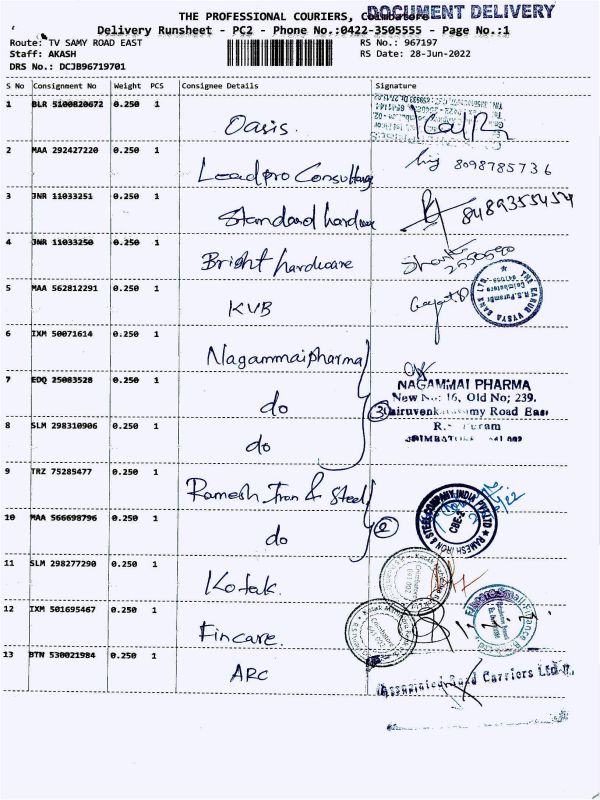 THE PROFESSIONAL COURIERS, Coimbatore
DOCUMENT DELIVERY
Delivery Runsheet - PC2 - Phone No.:0422-3505555 - Page No.:1
Route: TV SAMY ROAD EAST RS No.: 967197
Staff: AKASH RS Date: 28-Jun-2022
DRS No.: DCJB96719701
S No Consignment No Weight PCS Consignee Details Signature
1 BLR 5100820672 0.250 1 Oasis.
2 MAA 292427220 0.250 1 Leadpro Consulting 8098785736
3 JNR 11033251 0.250 1 Standard hardware 8489355454
4 JNR 11033250 0.250 1 Bright hardware
5 MAA 562812291 0.250 1 KVB
THE KARUR VYSYA BANK LTD.
6 IXM 50071614 0.250 1 Nagammai pharma
7 EDQ 25083528 0.250 1 do
8 SLM 298310906 0.250 1 do
3
NAGAMMAI PHARMA
New No: 16, Old No; 239.
Road East
R.S. Puram
COIMBATORE
9 TRZ 75285477 0.250 1 Ramesh Iron & Steel
10 MAA 566698796 0.250 1 do
2
RAMESH IRON & STEEL COMPANY INDIA PVT LTD
CBE-2
11 SLM 298277290 0.250 1 Kotak.
12 IXM 501695467 0.250 1 Fincare.
13 BTN 530021984 0.250 1 ARC
Associated Road Carriers Ltd